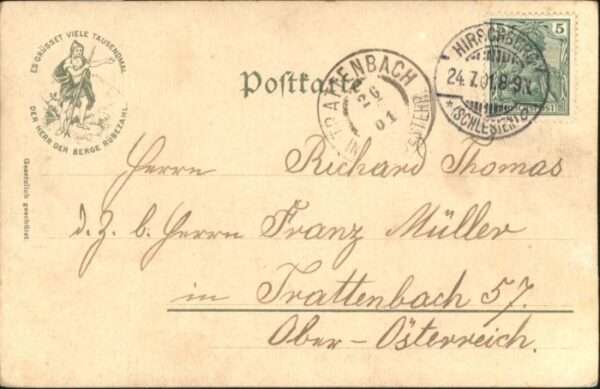 ES GRÜSSET VIELE TAUSENDMAL
DER HERR DER BERGE RÜBEZAHL.
Gesetzlich geschützt.
Postkarte
TRATTENBACH
26
01
HIRSCHBERG
24.7.01.8-9V.
*(SCHLESIEN)
5
Herrn Richard Thomas
d. Z. b. Herrn Franz Müller
in Trattenbach 57.
Ober-Österreich.